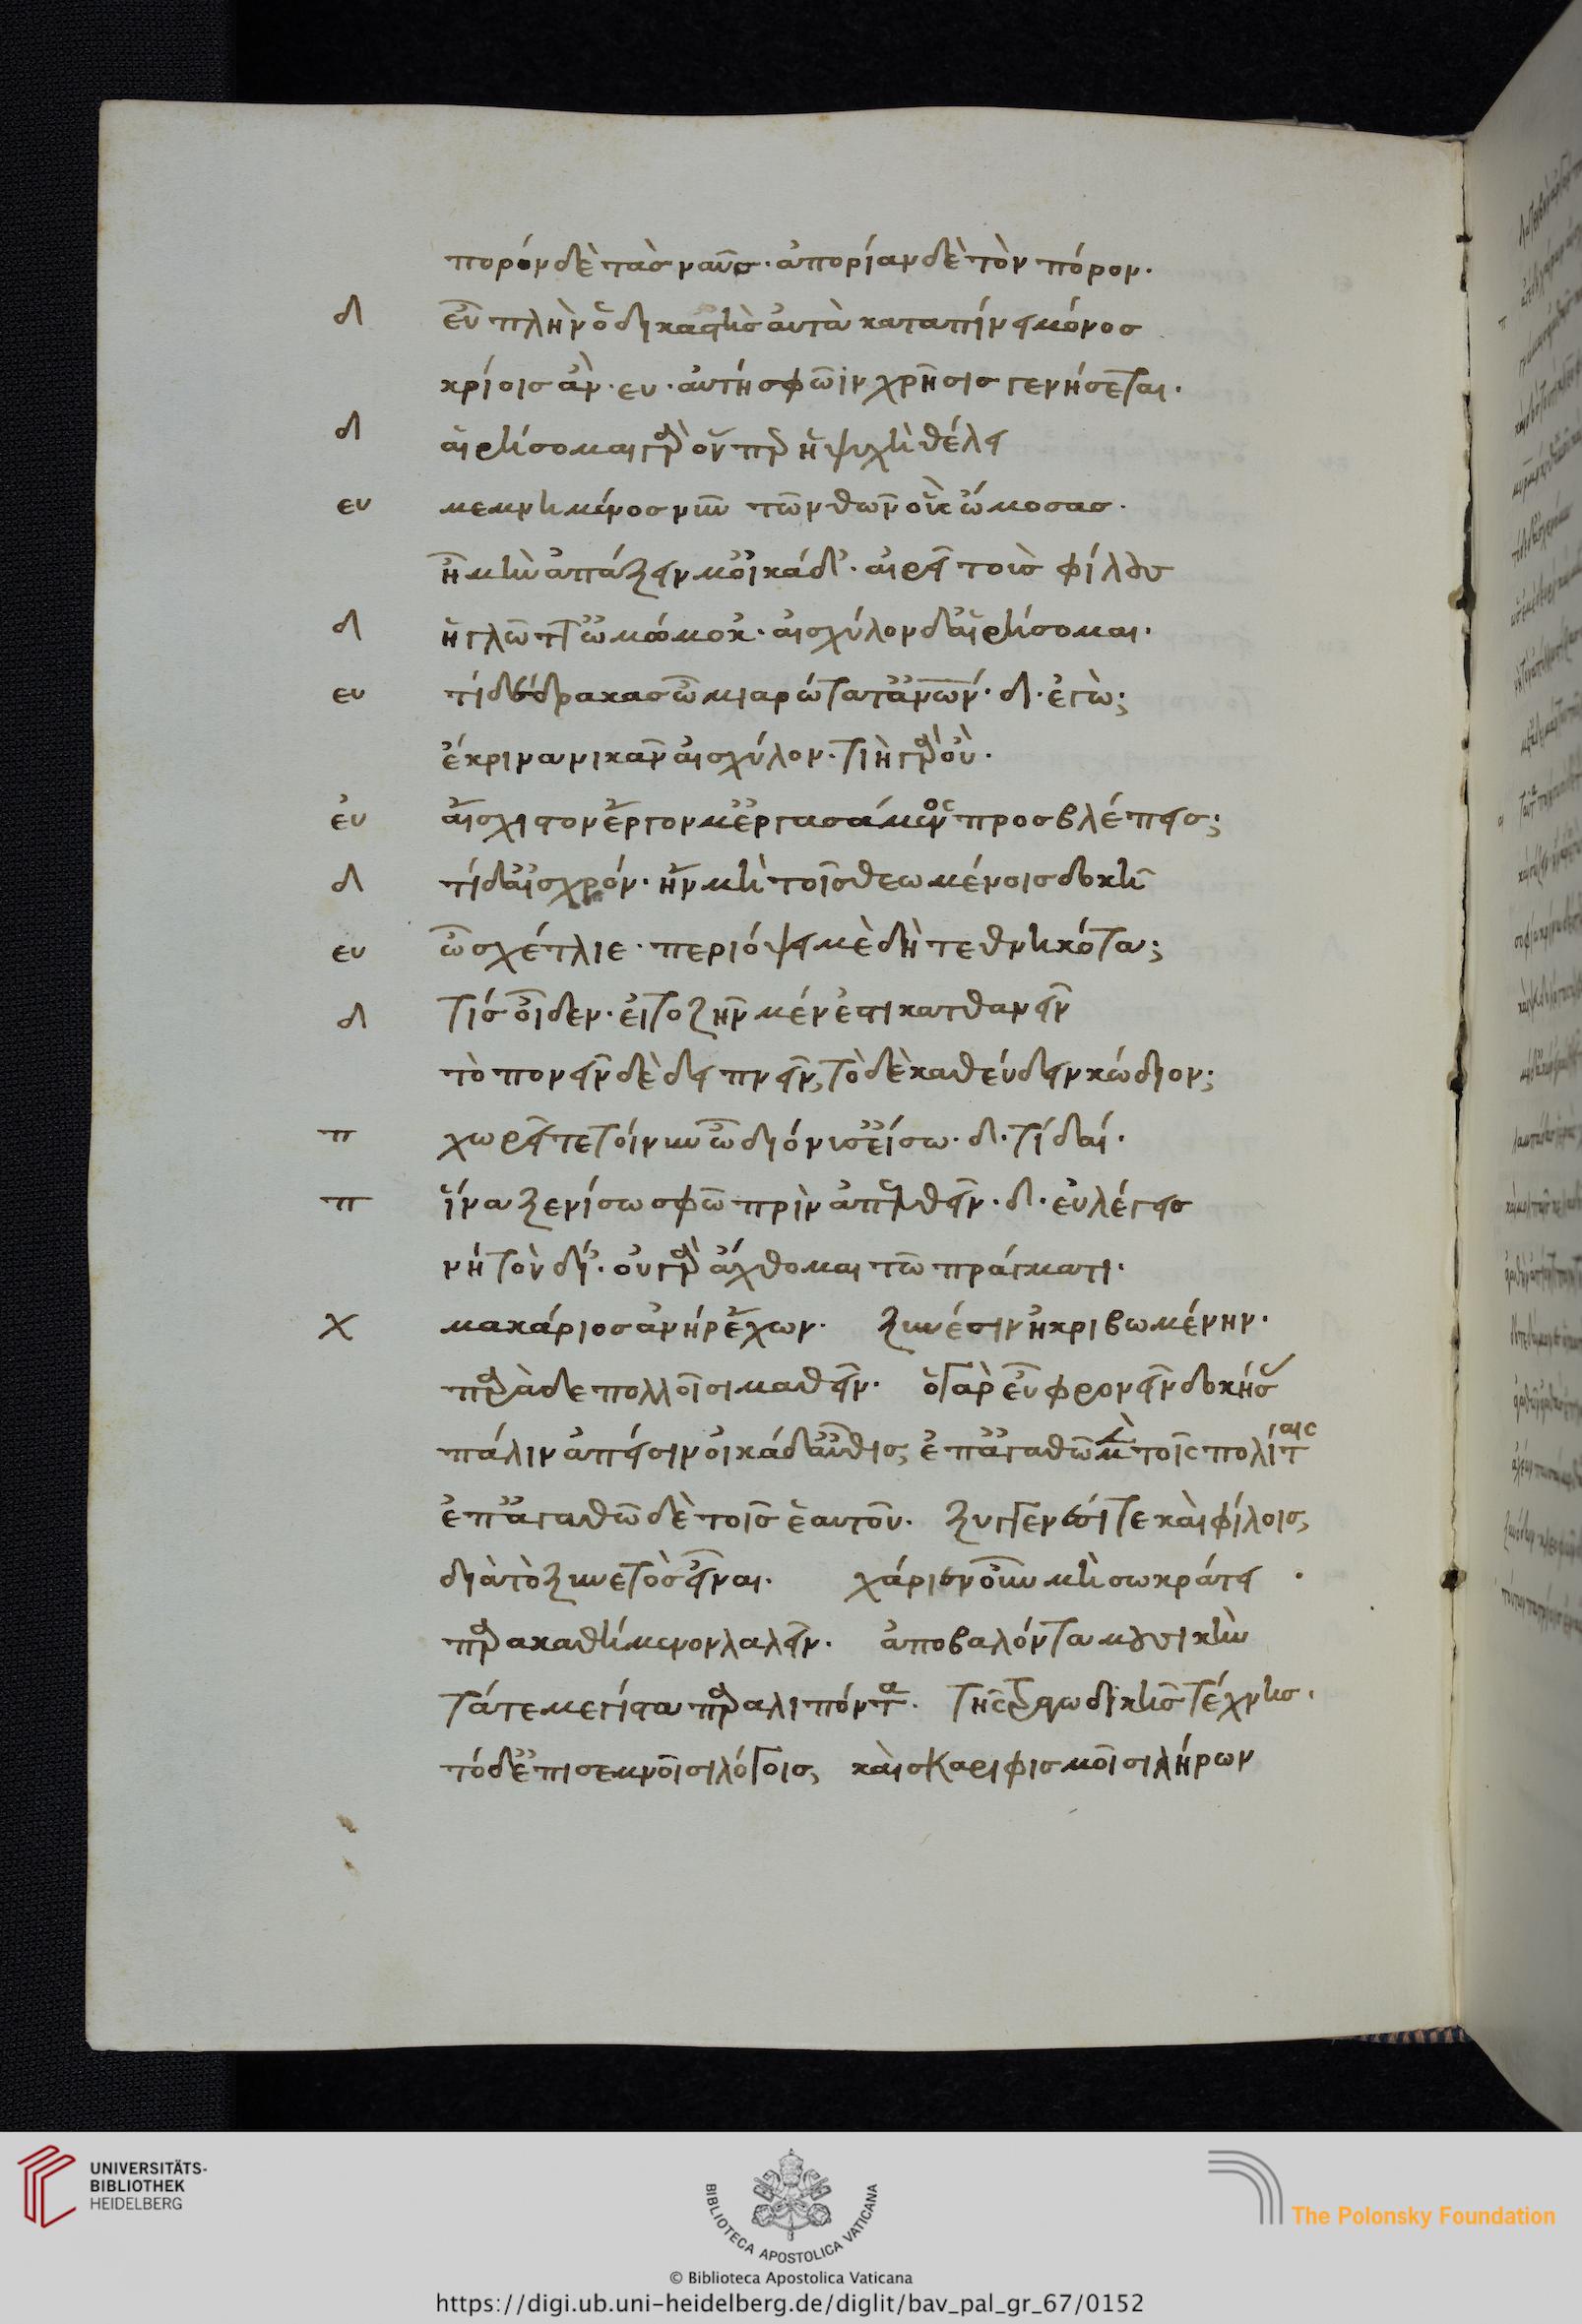 πορόν δὲ τὰς ναῦς· ἀπορίαν δὲ τὸν πόρον·
δι εὖ πλὴν ὁ δικαστὴς αὐτὰ καταπίνει μόνος
κρίσις ἂν· ευ· αὕτη σφῶϊν κρῆσις γενήσεται·
δι αἱρήσομαι γὰρ ὃν περ ἡ ψυχὴ θέλει
ευ μεμνημένος νῦν τῶν θεῶν οὓς ὤμοσας·
ἦ μὴν ἀπάξειν μ' οἴκαδ'· αἱροῦ τοὺς φίλους
δι ἡ γλῶττ' ὀμώμοκ'· αἰσχύλον δ' αἱρήσομαι·
ευ τί δέδρακας ὦ μιαρώτατ' ἀνων· δι· ἐγὼ;
ἔκρινα νικᾶν αἰσχύλον· τιὴ γὰρ οὔ·
ευ αἴσχιστον ἔργον μ' ἐργασάμενος προσβλέπεις;
δι τί δ' αἰσχρόν· ἢν μὴ τοῖς θεωμένοις δοκῆ
ευ ὦ σχέτλιε· περιόψει με δὴ τεθνηκότα;
δι τίς οἶδεν· εἰ τὸ ζῆν μέν ἐστι κατθανεῖν
τὸ πονεῖν δὲ δειπνεῖν, τὸ δὲ καθεύδειν κώδιον;
π χωρεῖτε τοίνυν ὦ διόνυσ' εἴσω· δι· τί δαί·
π ἵνα ξενίσω σφὼ πρὶν ἀπελθεῖν· δι· εὖ λέγεις
νὴ τὸν δί'· οὐ γὰρ ἄχθομαι τῶ πράγματι·
χ μακάριος ἀνὴρ ἔχων· ξύνεσιν ἠκριβωμένην·
πάρα δὲ πολλοῖσι μαθεῖν· ὁ γὰρ εὖ φρονεῖν δοκήσας
πάλιν ἄπεισιν οἴκαδ' αὖθις, ἐπ' ἀγαθῶ μὲν τοῖς πολίταις
ἐπ' ἀγαθῶ δὲ τοῖς ἑαυτοῦ· ξυγγενέσί τε καὶ φίλοις,
διὰ τὸ ξυνετὸς εἶναι· χάριεν οὖν μὴ σωκράτει ·
παρακαθήμενον λαλεῖν· ἀποβαλόντα μουσικὴν
τά τε μέγιστα παραλιπόντα· τῆς τραγωδικῆς τέχνης·
τὸ δ' ἐπὶ σεμνοῖσι λόγοις, καὶ σκαριφισμοῖσι λήρων
UNIVERSITÄTS-
BIBLIOTHEK
HEIDELBERG
BIBLIOTECA APOSTOLICA VATICANA
The Polonsky Foundation
© Biblioteca Apostolica Vaticana
https://digi.ub.uni-heidelberg.de/diglit/bav_pal_gr_67/0152